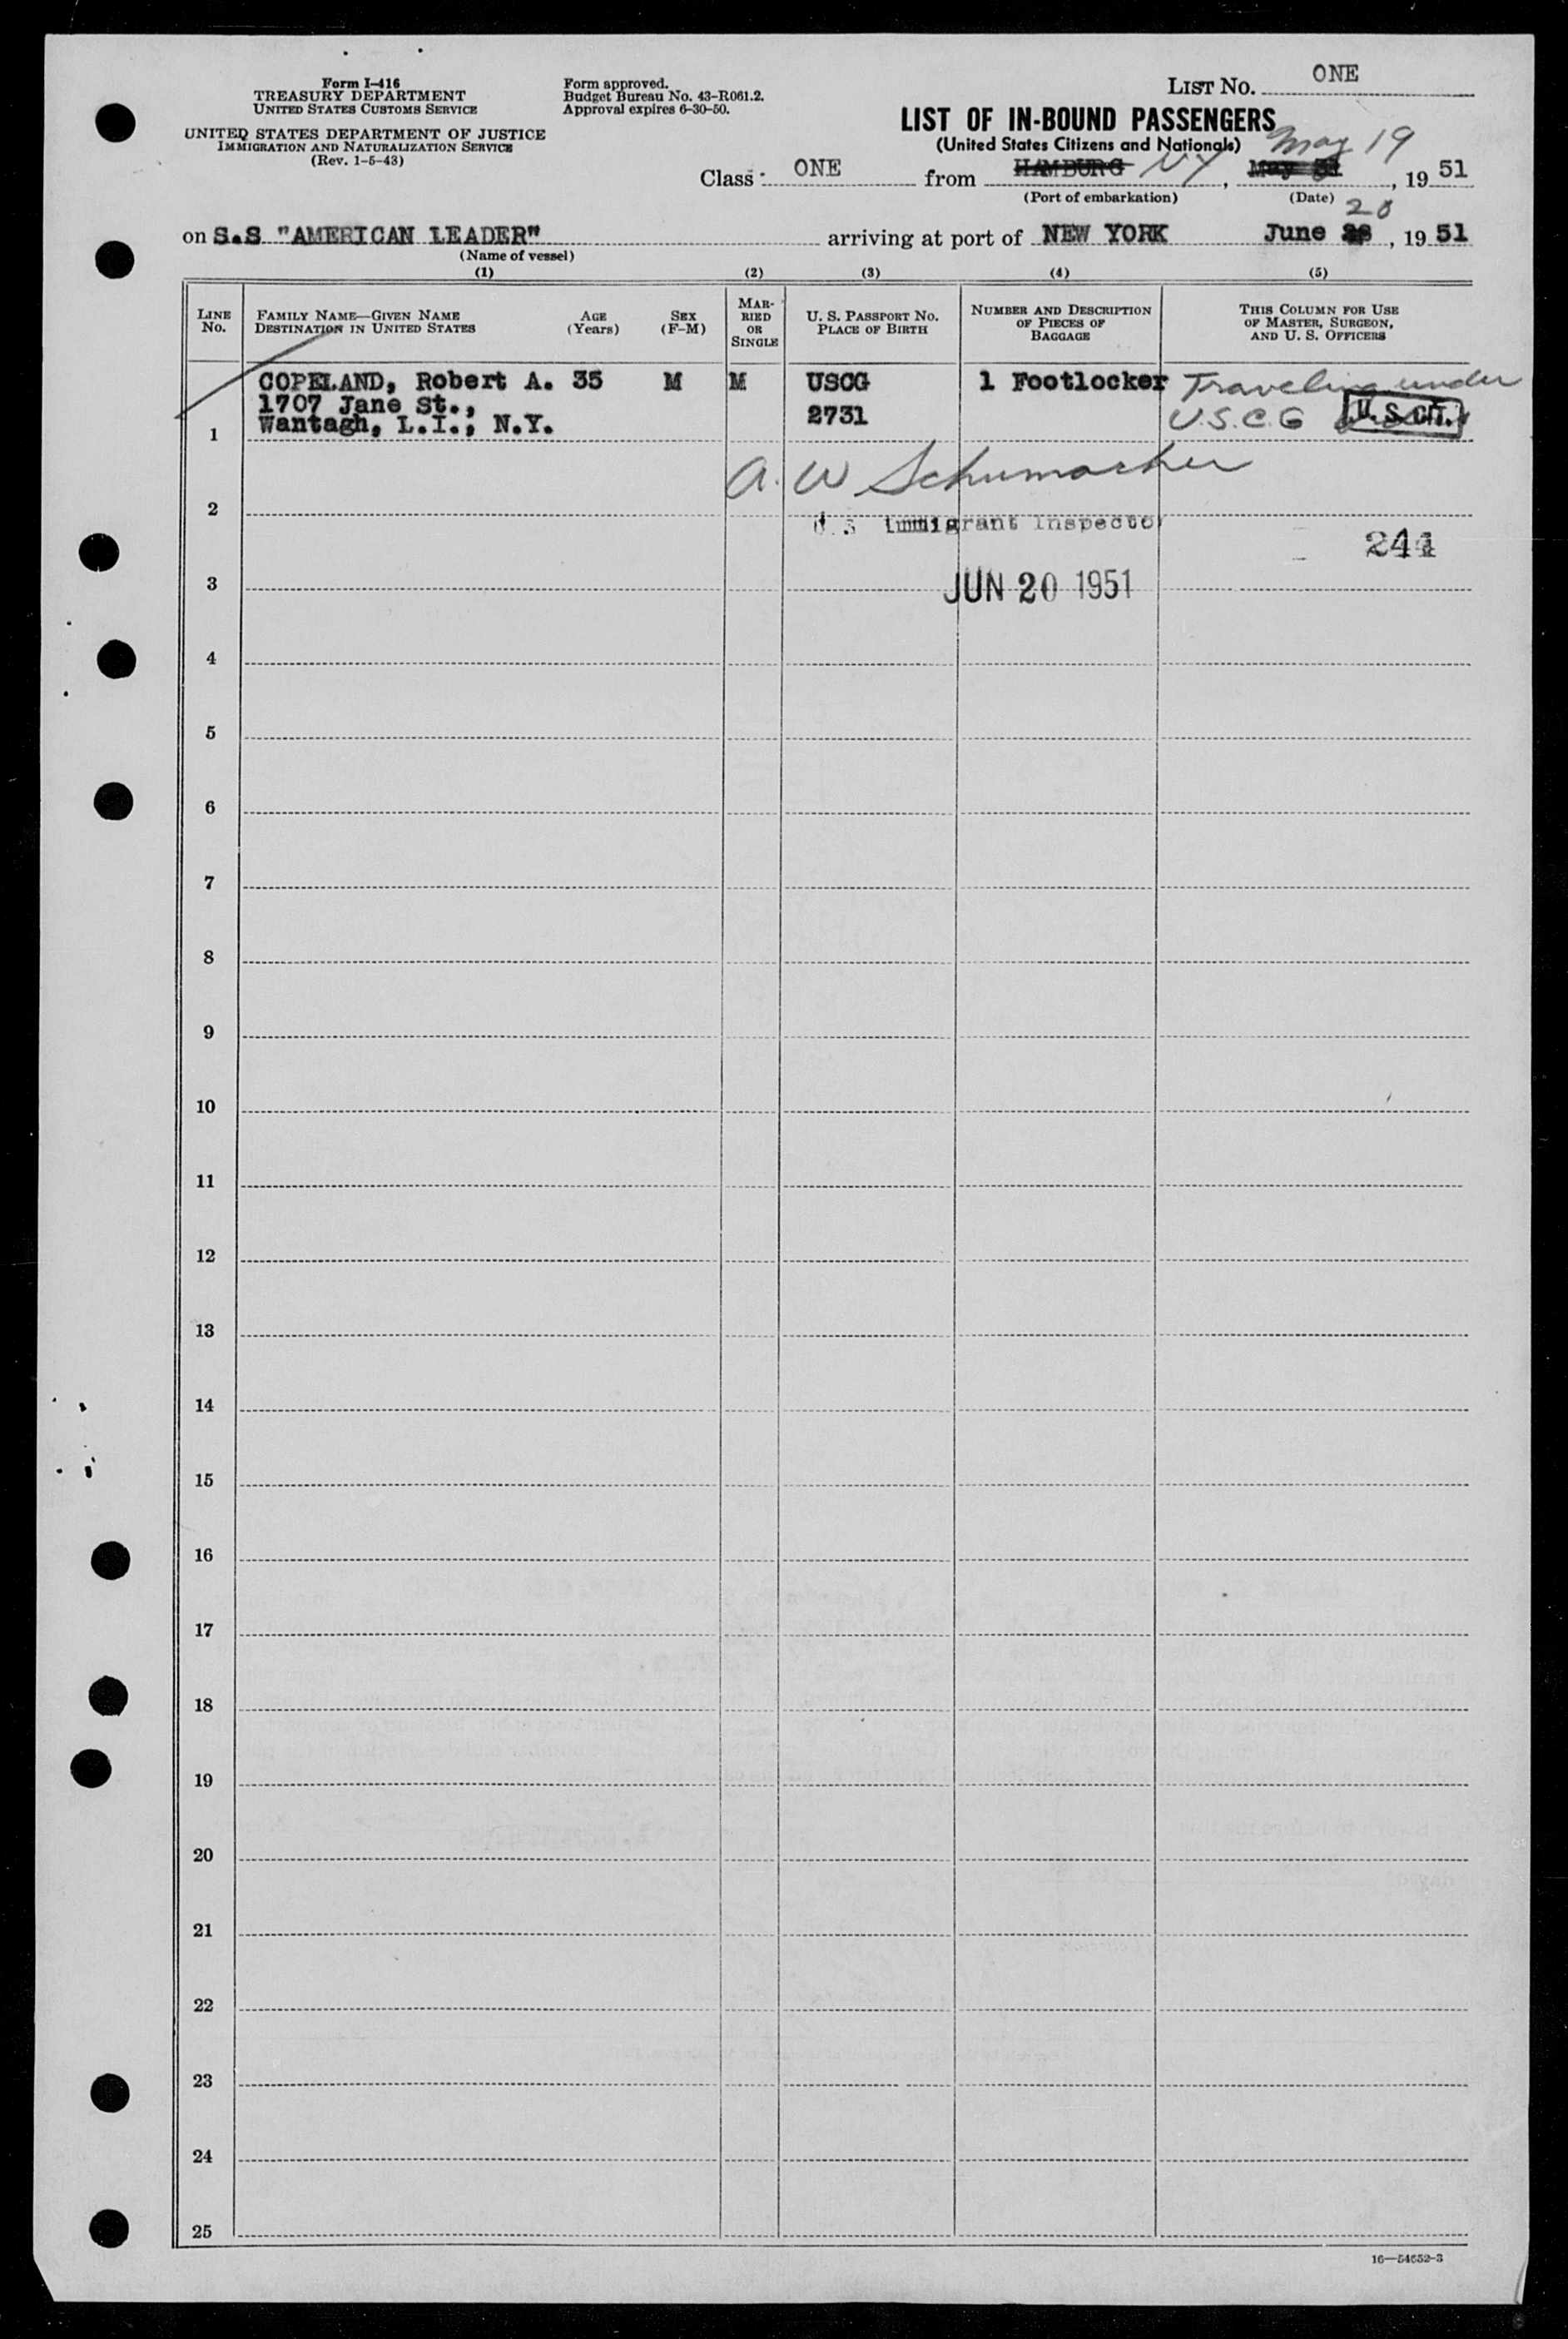 Form I-416
TREASURY DEPARTMENT
UNITED STATES CUSTOMS SERVICE
UNITED STATES DEPARTMENT OF JUSTICE
IMMIGRATION AND NATURALIZATION SERVICE
(Rev. 1-5-43)
Form approved.
Budget Bureau No. 43-R061.2.
Approval expires 6-30-50.
LIST NO. ONE
LIST OF IN-BOUND PASSENGERS
(United States Citizens and Nationals)
May 19
Class ONE from HAMBURG NY, May, 19 51
(Port of embarkation) (Date)
20
on S.S "AMERICAN LEADER" arriving at port of NEW YORK June, 19 51
(Name of vessel)
(1) (2) (3) (4) (5)
LINE No.
FAMILY NAME—GIVEN NAME
DESTINATION IN UNITED STATES
AGE (Years)
SEX (F-M)
MARRIED OR SINGLE
U. S. PASSPORT NO.
PLACE OF BIRTH
NUMBER AND DESCRIPTION
OF PIECES OF
BAGGAGE
THIS COLUMN FOR USE
OF MASTER, SURGEON,
AND U. S. OFFICERS
COPELAND, Robert A. 35 M M USCG 1 Footlocker Traveling under
1707 Jane St., 2731 U.S.C.G U.S. CIT.
Wantagh, L.I., N.Y.
1
A. W Schumacher
2
U. S Immigrant Inspector
244
3
JUN 20 1951
4
5
6
7
8
9
10
11
12
13
14
15
16
17
18
19
20
21
22
23
24
25
16—54652-3